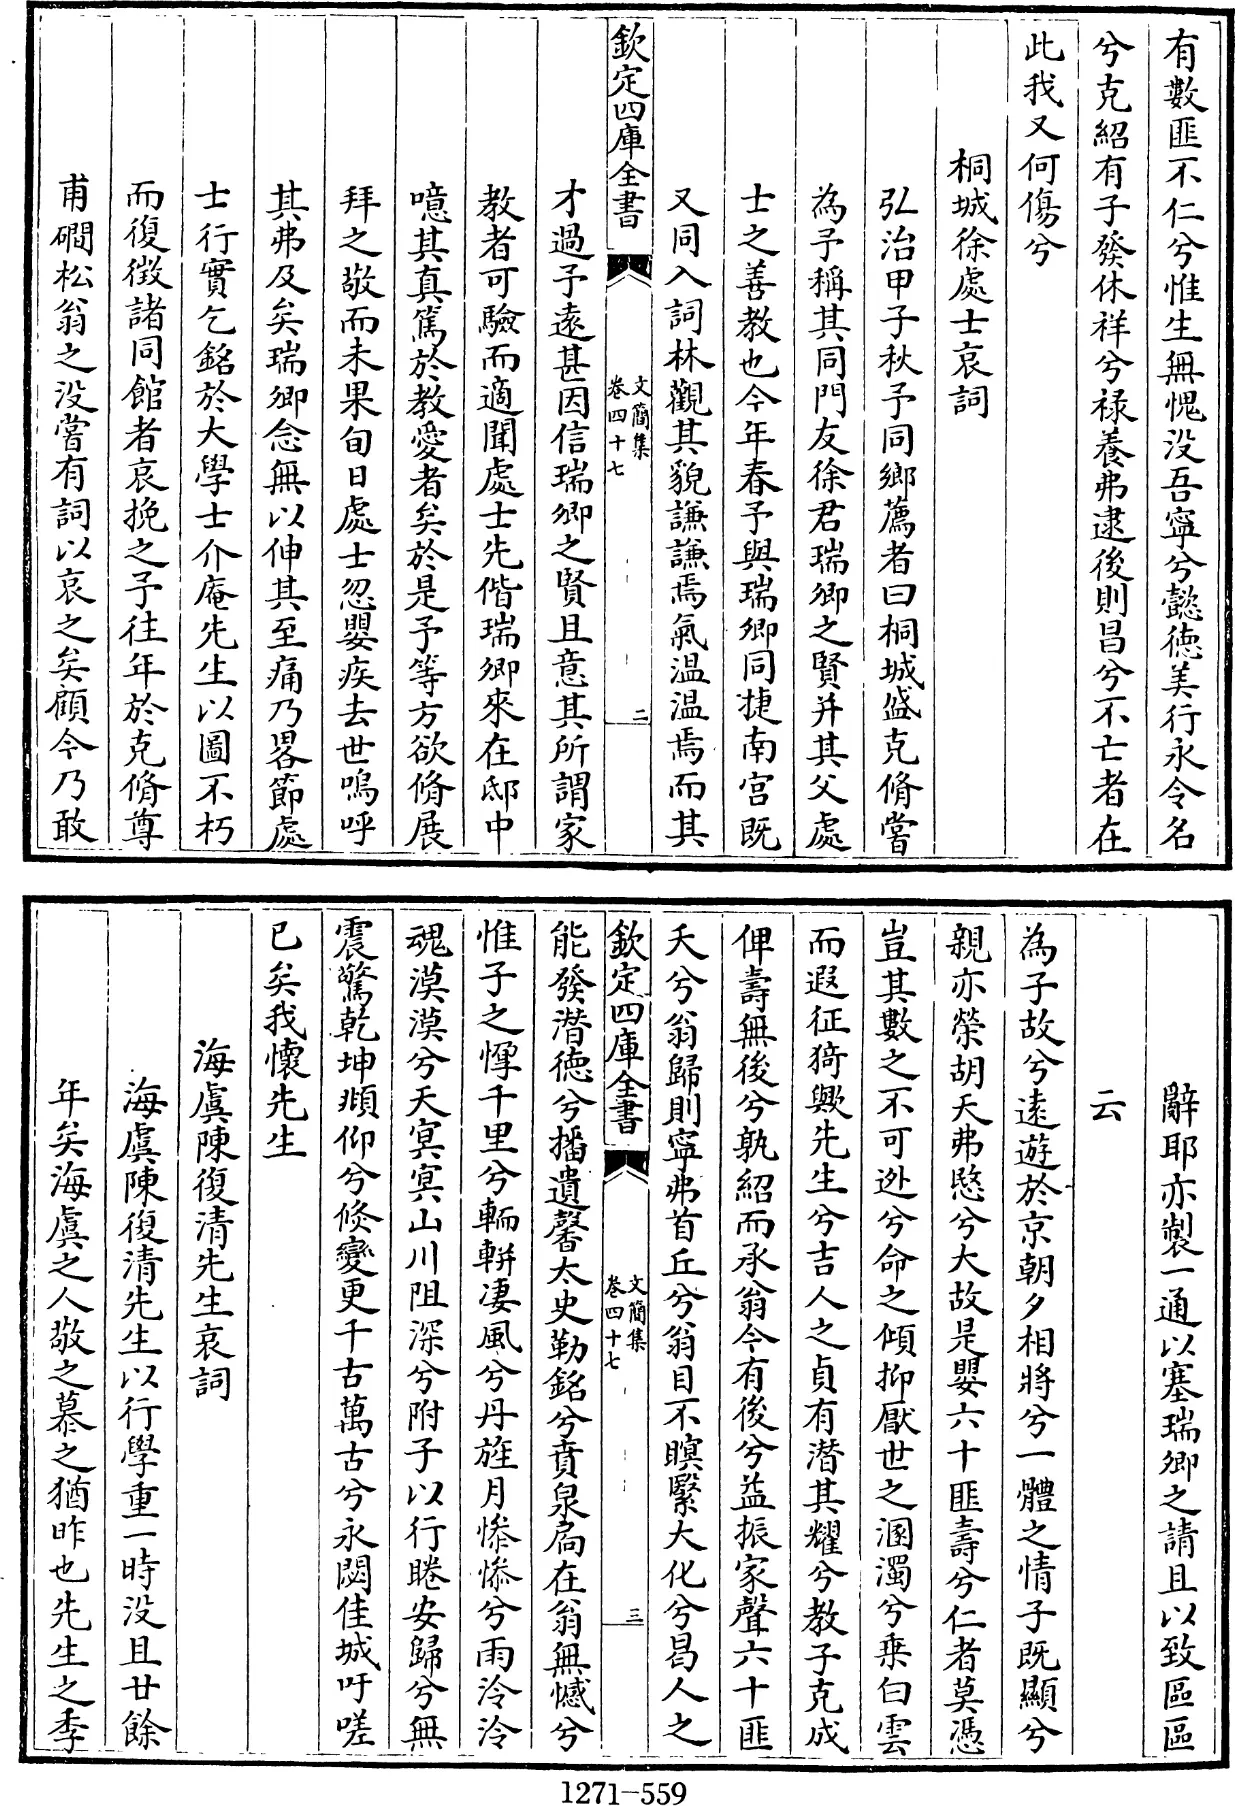 有數匪不仁兮惟生無愧没吾寧兮懿徳美行永令名
兮克紹有子發休祥兮禄養弗逮後則昌兮不亡者在
此我又何傷兮
桐城徐處士哀詞
弘治甲子秋予同鄉薦者曰桐城盛克脩嘗
為予稱其同門友徐君瑞卿之賢并其父處
士之善教也今年春予與瑞卿同捷南宫既
又同入詞林觀其貌謙謙焉氣温温焉而其
欽定四庫全書
文簡集
卷四十七
二
才過予遠甚因信瑞卿之賢且意其所謂家
教者可驗而適聞處士先偕瑞卿來在邸中
噫其真篤於教愛者矣於是予等方欲脩展
拜之敬而未果旬日處士忽嬰疾去世嗚呼
其弗及矣瑞卿念無以伸其至痛乃畧節處
士行實乞銘於大學士介庵先生以圖不朽
而復徴諸同館者哀挽之予往年於克脩尊
甫礀松翁之没嘗有詞以哀之矣顧今乃敢
辭耶亦製一通以塞瑞卿之請且以致區區
云
為子故兮遠遊於京朝夕相將兮一體之情子既顯兮
親亦榮胡天弗愍兮大故是嬰六十匪壽兮仁者莫憑
豈其數之不可逃兮命之傾抑厭世之溷濁兮乗白雲
而遐征猗歟先生兮吉人之貞有潜其耀兮教子克成
俾壽無後兮孰紹而承翁今有後兮益振家聲六十匪
夭兮翁歸則寧弗首丘兮翁目不瞑繄大化兮曷人之
欽定四庫全書
文簡集
卷四十七
三
能發潜徳兮播遺馨太史勒銘兮賁泉扃在翁無憾兮
惟子之惸千里兮輀軿凄風兮丹旌月慘慘兮雨泠泠
魂漠漠兮天冥冥山川阻深兮附子以行睠安歸兮無
震驚乾坤頫仰兮倐變更千古萬古兮永閟佳城吁嗟
已矣我懐先生
海虞陳復清先生哀詞
海虞陳復清先生以行學重一時没且廿餘
年矣海虞之人敬之慕之猶昨也先生之季
1271-559